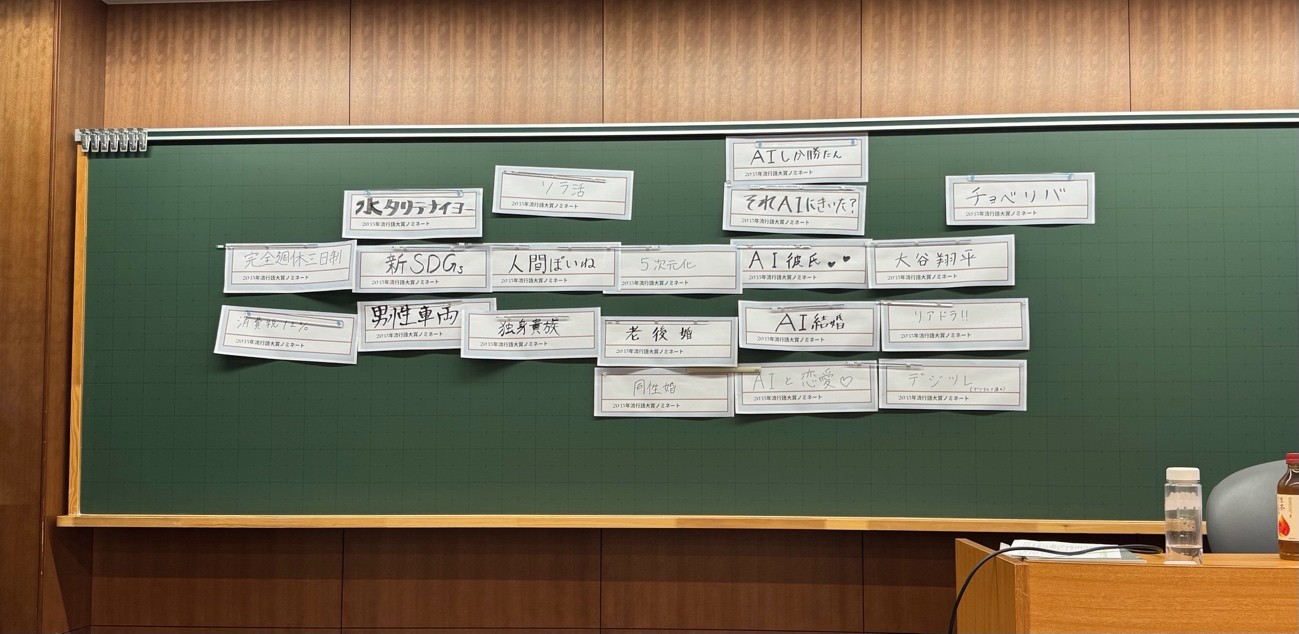 AIしか勝たん
2035年流行語大賞ノミネート
ソラ活
2035年流行語大賞ノミネート
水タリテナイヨー
2035年流行語大賞ノミネート
それAIにきいた?
2035年流行語大賞ノミネート
チョベリバ
2035年流行語大賞ノミネート
完全週休三日制
2035年流行語大賞ノミネート
新SDGs
2035年流行語大賞ノミネート
人間ぽいね
2035年流行語大賞ノミネート
5次元化
2035年流行語大賞ノミネート
AI彼氏♥♥
2035年流行語大賞ノミネート
大谷翔平
2035年流行語大賞ノミネート
消費税
2035年流行語大賞ノミネート
男性車両
2035年流行語大賞ノミネート
独身貴族
2035年流行語大賞ノミネート
老後婚
2035年流行語大賞ノミネート
AI結婚
2035年流行語大賞ノミネート
リアドラ!!
2035年流行語大賞ノミネート
同性婚
2035年流行語大賞ノミネート
AIと恋愛♡
2035年流行語大賞ノミネート
デジツレ
2035年流行語大賞ノミネート